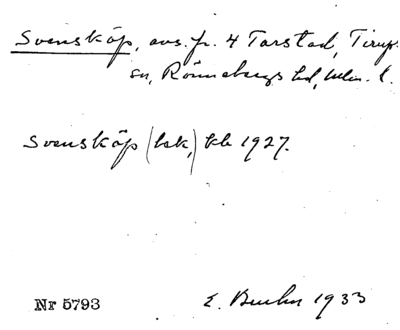 Svensköp, avs. fr. 4 Tarstad, Tirups
sn, Rönnebergs hd, Mlm. l.
Svensköp (bsk,) kb 1927.
Nr 5793
E. 1933